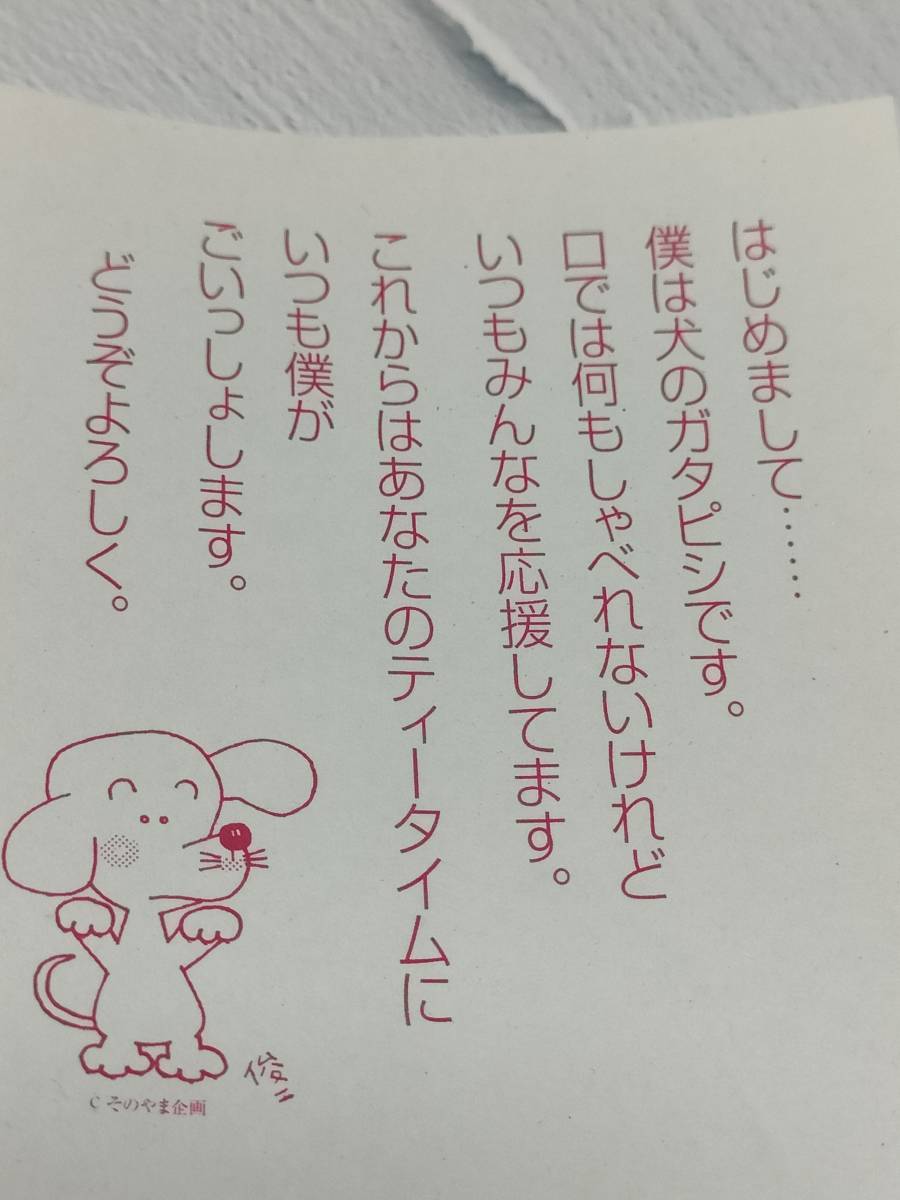 はじめまして……
僕は犬のガタピシです。
口では何もしゃべれないけれど
いつもみんなを応援してます。
これからはあなたのティータイムに
いつも僕が
ごいっしょします。
どうぞよろしく。
俊
C そのやま企画